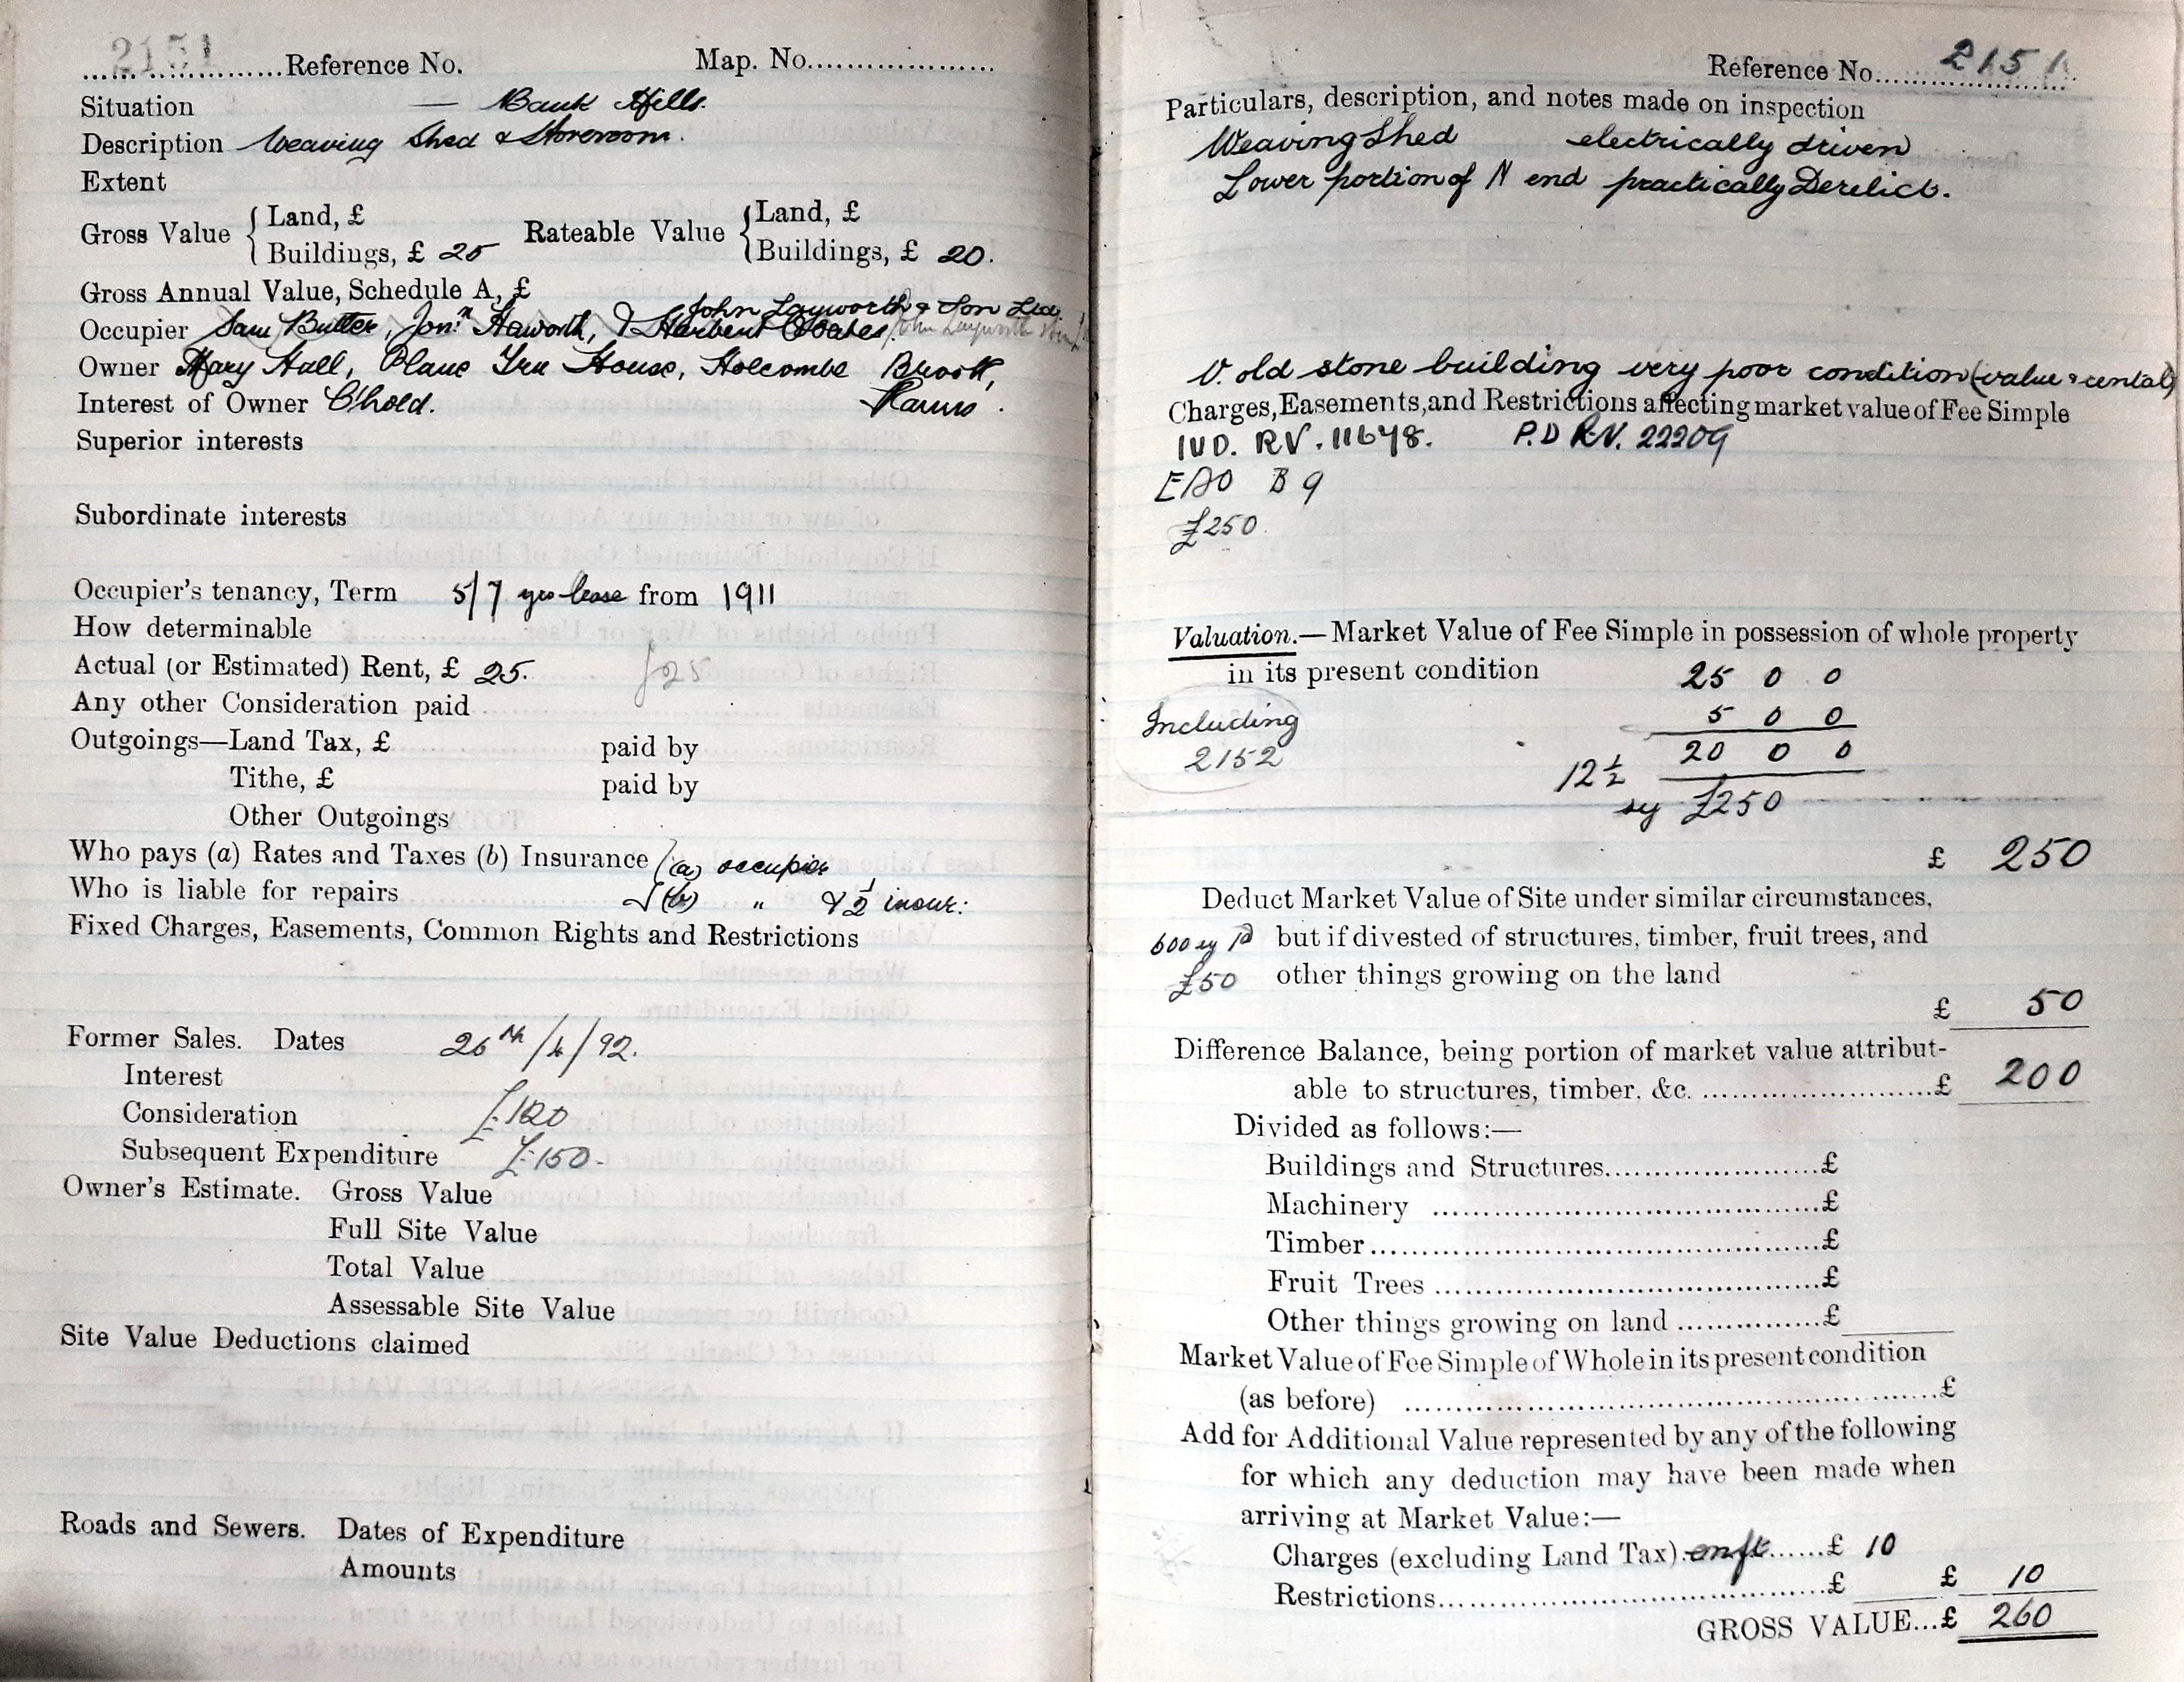 2151
Reference No. Map. No.
Situation — Bank Hills.
Description Weaving Shed & Storeroom.
Extent
Gross Value { Land, £ Rateable Value { Land, £
Buildings, £ 25 Buildings, £ 20.
Gross Annual Value, Schedule A, £
John Layworth & Son Ltd.
Occupier Sam Butter, Jonn Haworth, & Herbert Coates.
Owner Mary Hall, Plane Tree House, Holcombe Brook,
Interest of Owner C'hold.
Superior interests
Subordinate interests
Occupier's tenancy, Term 5/7 yrs lease from 1911
How determinable
Actual (or Estimated) Rent, £ 25. £25
Any other Consideration paid
Outgoings—Land Tax, £ paid by
Tithe, £ paid by
Other Outgoings
Who pays (a) Rates and Taxes (b) Insurance (a) occupier
Who is liable for repairs (b) " & ½ insur:
Fixed Charges, Easements, Common Rights and Restrictions
Former Sales. Dates 26th/4/92.
Interest
Consideration £120
Subsequent Expenditure £150-
Owner's Estimate. Gross Value
Full Site Value
Total Value
Assessable Site Value
Site Value Deductions claimed
Roads and Sewers. Dates of Expenditure
Amounts
Reference No. 2151
Particulars, description, and notes made on inspection
Weaving Shed electrically driven
Lower portion of N end practically Derelict.
V. old stone building very poor condition (value & rental)
Charges, Easements, and Restrictions affecting market value of Fee Simple
IVD. RV. 11648. P.D RV. 22209
B 9
£250
Valuation.—Market Value of Fee Simple in possession of whole property
in its present condition 25 0 0
5 0 0
Including
2152
20 0 0
12½
sy £250
£ 250
Deduct Market Value of Site under similar circumstances,
600 sy 1d but if divested of structures, timber, fruit trees, and
£50 other things growing on the land
£ 50
Difference Balance, being portion of market value attribut-
able to structures, timber, &c. £ 200
Divided as follows:—
Buildings and Structures £
Machinery £
Timber £
Fruit Trees £
Other things growing on land £
Market Value of Fee Simple of Whole in its present condition
(as before) £
Add for Additional Value represented by any of the following
for which any deduction may have been made when
arriving at Market Value:—
Charges (excluding Land Tax) enft £ 10
Restrictions £ £ 10
GROSS VALUE...£ 260